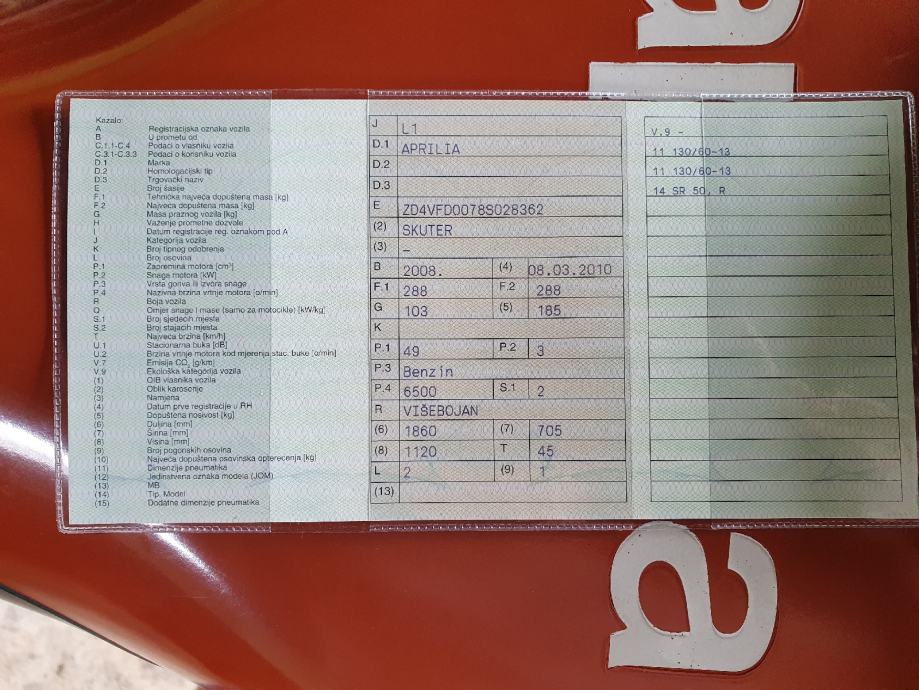 al
Kazalo:
A Registracijska oznaka vozila
B U prometu od
C.1.1-C.4 Podaci o vlasniku vozila
C.3.1-C.3.3 Podaci o korisniku vozila
D.1 Marka
D.2 Homologacijski tip
D.3 Trgovački naziv
E Broj šasije
F.1 Tehnička najveća dopuštena masa [kg]
F.2 Najveća dopuštena masa [kg]
G Masa praznog vozila [kg]
H Važenje prometne dozvole
I Datum registracije reg. oznakom pod A
J Kategorija vozila
K Broj tipnog odobrenja
L Broj osovina
P.1 Zapremina motora [cm³]
P.2 Snaga motora [kW]
P.3 Vrsta goriva ili izvora snage
P.4 Nazivna brzina vrtnje motora [o/min]
R Boja vozila
Q Omjer snage i mase (samo za motocikle) [kW/kg]
S.1 Broj sjedećih mjesta
S.2 Broj stajaćih mjesta
T Najveća brzina [km/h]
U.1 Stacionarna buka [dB]
U.2 Brzina vrtnje motora kod mjerenja stac. buke [o/min]
V.7 Emisija CO₂ [g/km]
V.9 Ekološka kategorija vozila
(1) OIB vlasnika vozila
(2) Oblik karoserije
(3) Namjena
(4) Datum prve registracije u RH
(5) Dopuštena nosivost [kg]
(6) Duljina [mm]
(7) Širina [mm]
(8) Visina [mm]
(9) Broj pogonskih osovina
(10) Najveća dopuštena osovinska opterećenja [kg]
(11) Dimenzije pneumatika
(12) Jedinstvena oznaka modela (JOM)
(13) MB
(14) Tip, Model
(15) Dodatne dimenzije pneumatika
J L1
D.1 APRILIA
D.2
D.3
E ZD4VFD0078S028362
(2) SKUTER
(3) –
B 2008. (4) 08.03.2010
F.1 288 F.2 288
G 103 (5) 185
K
P.1 49 P.2 3
P.3 Benzin
P.4 6500 S.1 2
R VIŠEBOJAN
(6) 1860 (7) 705
(8) 1120 T 45
L 2 (9) 1
(13)
V.9 -
11 130/60-13
11 130/60-13
14 SR 50, R
a